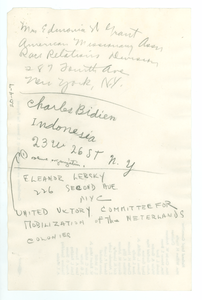 Mrs Edmonia W Grant
American Missionary Assn
Race Relations Division
287 Fourth Ave
New York, N.Y.
Charles Bidien
Indonesia
23 W 26 ST N.Y
ELEANOR LERSKY
226 SECOND AVE
NYC
UNITED VICTORY COMMITTEE FOR
MOBILIZATION of the NETERLANDS
COLONIES